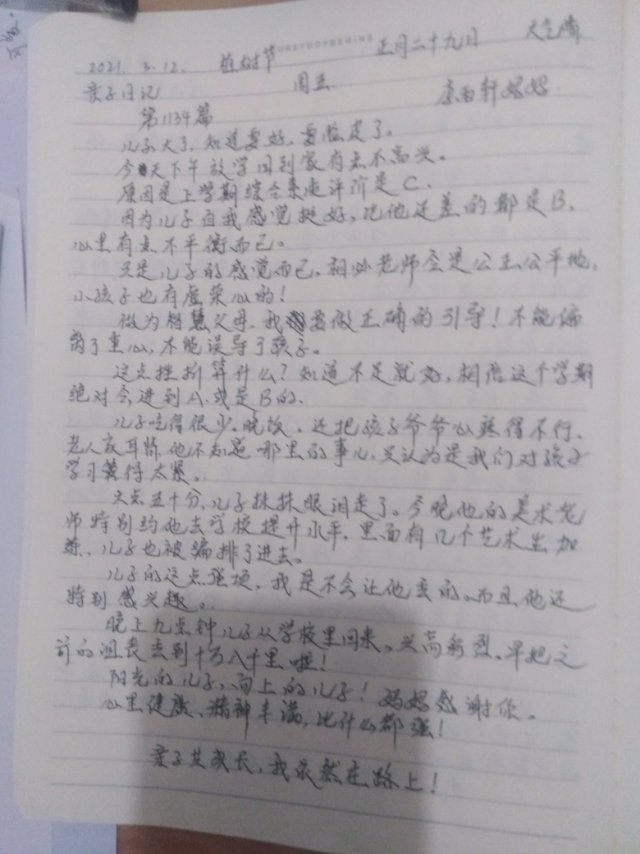 2021. 3. 12. 植树节 正月二十九日 天气晴
亲子日记 周五 雨轩妈妈
第1134篇
儿子大了,知道要好,要脸走了。
今天下午放学回到家有点不高兴。
原因是上学期综合素质评价是C.
因为儿子自我感觉挺好,比他还差的都是B,
心里有点不平衡而已。
只是儿子的感觉而已,相必老师会是公正公平地,
小孩子也有虚荣心的!
做为智慧父母,我要做正确的引导!不能偏
离了重心,不能误导了孩子。
这点挫折算什么?知道不足就好,相信这个学期
绝对会进到A或是B的.
儿子吃得很少晚饭,还把孩子爷爷心疼得不行.
老人家耳背,他不知道哪里的事儿,只认为是我们对孩子
学习管得太紧。
六点五十分,儿子抹抹眼泪走了。今晚他的美术老
师特别约他去学校提升水平,里面有几个艺术生加
练、儿子也被编排了进去。
儿子的这点强项,我是不会让他丢的。而且他还
特别感兴趣。
晚上九点钟儿子从学校里回来。兴高彩烈、早把之
前的沮丧丢到十万八千里啦!
阳光的儿子,向上的儿子!妈妈感谢你。
心里健康、精神丰满,比什么都强!
亲子共成长,我依然在路上!